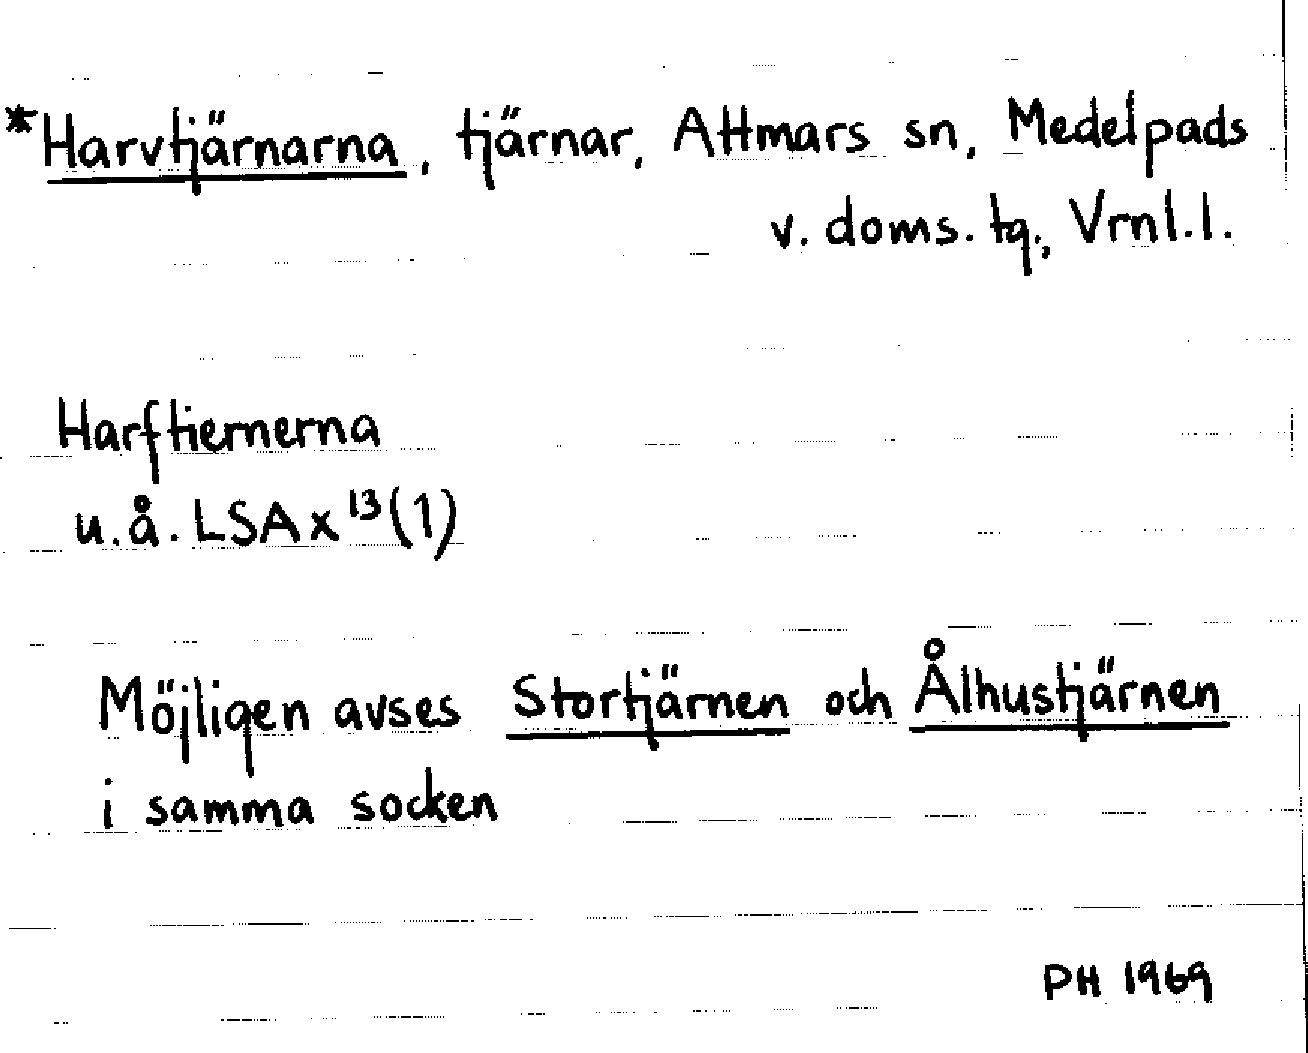 *Harvtjärnarna, tjärnar, Attmars sn, Medelpads
v. doms. tg., Vrnl.l.
Harftiernerna
u.å. LSA x 13(1)
Möjligen avses Stortjärnen och Ålhustjärnen
i samma socken
PH 1969